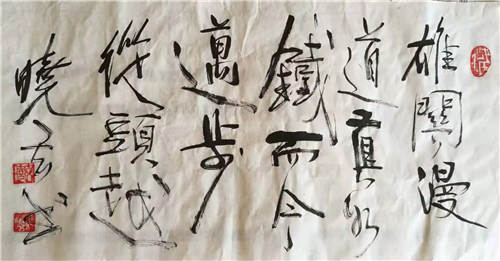 雄關漫
道真如
鐵而今
邁步
從頭越
曉书